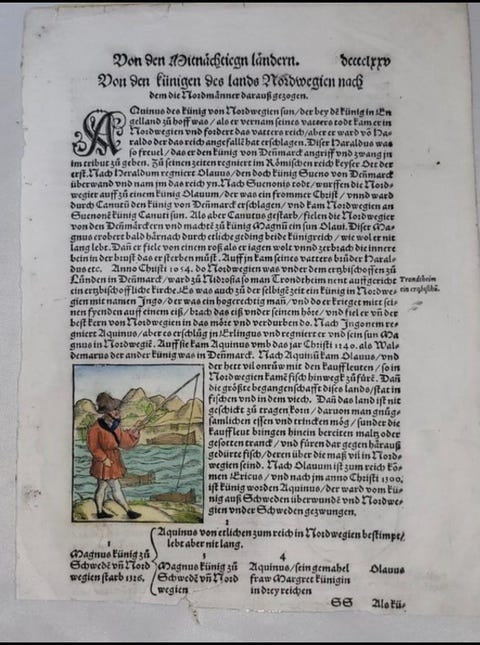 Von den Mitnächtiegn ländern. dcccclxxv
Von den künigen des lands Nordwegien nach
dem die Nordmänner darauß gezogen.
AQuinus des künig von Nordwegien sun / der bey dē künig in En
gelland zů hoff was / als er vernam seines vatters todt kam er in
Nordwegien vnd fordert das vatters reich / aber er ward vō Ha
raldo der das reich angefallē hat erschlagen. Diser Haraldus was
so freuel / das er den künig von Deñmarck angriff vnd zwang jn
im tribut zů geben. Zů seinen zeiten regniert im Römischen reich keyser Ott der
erst. Nach Heraldum regniert Olauus / den doch künig Sueno von Deñmarck
überwand vnd nam jm das reich yn. Nach Suenonis todt / wurffen die Nord=
wegier auff zů einem künig Olauum / der was ein frommer Christ / vnnd ward
durch Canutū den künig von Deñmarck erschlagen / vnd kam Nordwegien an
Suenonē künig Canuti sun. Als aber Canutus gestarb / fielen die Nordwegier
von den Deñmärckern vnd machtē zů künig Magnū ein sun Olaui. Diser Ma=
gnus erobert bald härnach durch etliche geding beide künigreich / wie wol er nit
lang lebt. Dañ er fiel von einem roß als er jagen wolt vnnd zerbach die innere
bein in der brust das er sterben můst. Auff jn kam seines vatters brůder Haral=
dus etc. Anno Christi 1054. do Nordwegien was vnder dem ertzbischoffen zů
Lunden in Deñmarck / ward zů Nidrosia so man Trondtheim nent auffgericht
ein ertzbischoffliche kirch. Es was auch zů der selbigē zeit ein künig in Nordwe=
gien mit namen Ingo / der was ein hogerechtig man / vnd do er krieget mitt sei=
nen fyenden auff einem eiß / brach das eiß vnder seinem höre / vnd fiel er vñ der
best kern von Nordwegien in das mōre vnd verdurben do. Nach Ingonem re=
gniert Aquinus / aber es erschlůg jn Erlingus vnd regniert er vnd sein sun Ma
gnus in Nordwegiē. Auff sie kam Aquinus vmb das jar Christi 1240. als Wal=
demarus der ander künig was in Deñmarck. Nach Aquinū kam Olauus / vnd
der hett vil onrůw mit den kauffleuten / so in
Nordwegien kamē fisch hinweg zů fürē. Dañ
die größte begangenschafft dises lands / stat in
fischen vnd in dem viech. Dañ das land ist nit
geschickt zů tragen korn / daruon man gnůg=
samlichen essen vnd trincken mög / sunder die
kauffleut bringen hinein bereiten maltz oder
gesotten tranck / vnd füren dar gegen härauß
gedürte fisch / deren über die maß vil in Nord=
wegien seind. Nach Olauum ist zum reich kō=
men Ericus / vnd nach jm anno Christi 1300.
ist künig worden Aquinus / der ward vom kü=
nig auß Schweden überwundē vnd Nordwe=
gien vnder Schweden gezwungen.
Trondtheim
ein ertzbisthū.
2
Aquinus von etlichen zum reich in Nordwegien bestimpt /
lebt aber nit lang.
1
Magnus künig zů
Schwedē vñ Nord
wegien starb 1326.
3
Magnus künig zů
Schwedē vñ Nord
wegien
4
Aquinus / sein gemahel
fraw Margret künigin
in drey reichen
Olauus
SS Als kü=